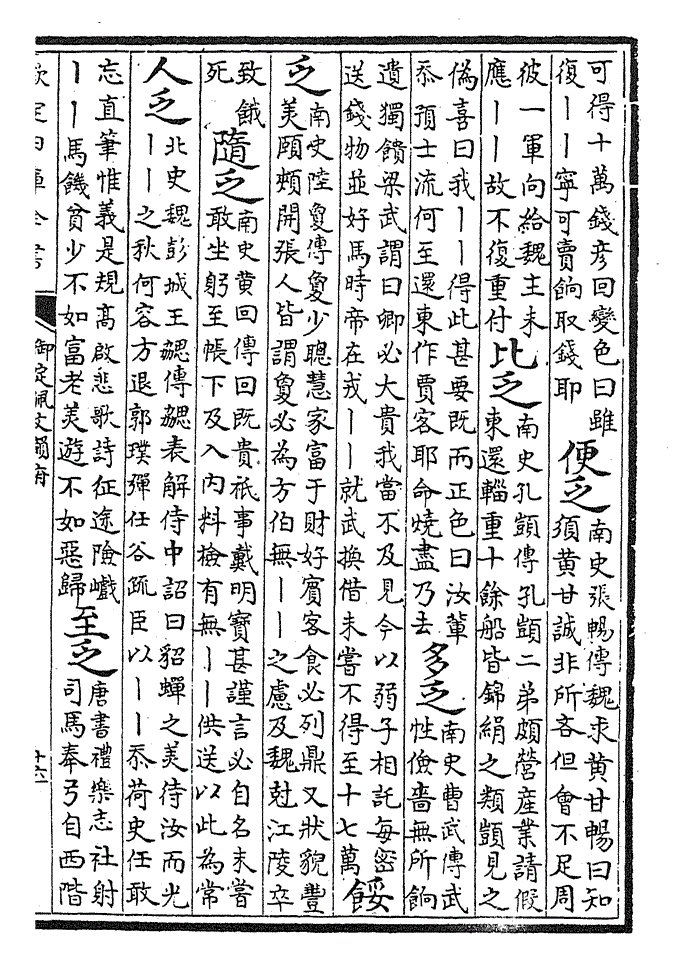 可得十萬錢彦回變色曰雖
復丨丨寧可賣餉取錢耶
便乏
南史張暢傳魏求黄甘暢曰知
須黄甘誠非所吝但會不足周
彼一軍向給魏主未
應丨丨故不復重付
比乏
南史孔顗傳孔顗二弟頗營産業請假
東還輜重十餘船皆錦絹之類顗見之
偽喜曰我丨丨得此甚要既而正色曰汝輩
忝預士流何至還東作賈客耶命燒盡乃去
多乏
南史曹武傳武
性儉嗇無所餉
遺獨饋梁武謂曰卿必大貴我當不及見今以弱子相託每密
送錢物並好馬時帝在戎丨丨就武換借未嘗不得至十七萬
餒
乏
南史陸敻傳敻少聰慧家富于財好賓客食必列鼎又狀貌豐
美頤頰開張人皆謂敻必為方伯無丨丨之慮及魏尅江陵卒
致餓
死
隨乏
南史黄回傳回既貴祗事戴明寶甚謹言必自名未嘗
敢坐躬至帳下及入内料檢有無丨丨供送以此為常
人乏
北史魏彭城王勰傳勰表解侍中詔曰貂蟬之美待汝而光
丨丨之秋何容方退郭璞彈任谷疏臣以丨丨忝荷史任敢
忘直筆惟義是規高啟悲歌詩征途險巇
丨丨馬饑貧少不如富老美遊不如惡歸
至乏
唐書禮樂志社射
司馬奉弓自西階
欽定四庫全書
御定佩文韻府
十六